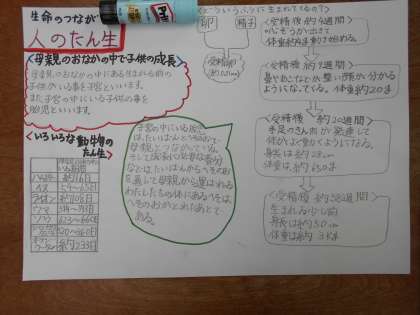 生命のつなが
人のたん生
<母親のおなかの中で子供の成長>
母親のおなかの中にある生まれる前の
子がいる事を子宮といいます。
また子宮の中にいる子の事を
胎児といいます。
<いろいろな動牛物の
たん生>
ハムスター 約16日
イヌ
ライオン 約108日
ウマ
ゾウ
約233日
子宮の中にいる胎児
は、たいばんとへそのおで
母親とつながっている。
そして成長に必要な養分
などはたいばんからへそのお
を通して母親から運ばれる
わたしたちの体にあるへそは
へそのおがとれたあとで
ある。
どういうふうに生まれてくるの?
卵 精子
受精卵
<受精後 約4週間>
心ぞうが出きて
体重約 動き始める。
<受精後 約9週間>
鼻や などが整い顔が分かる
ようになっている。体重約20g
<受精後 約20週間>
手足のきん肉が発達して
体がよく動くようになる。
身長は約28cm
体重は約650g
<受精後 約38週間>
生まれる少し前
身長は約50cm
体重は約3kg